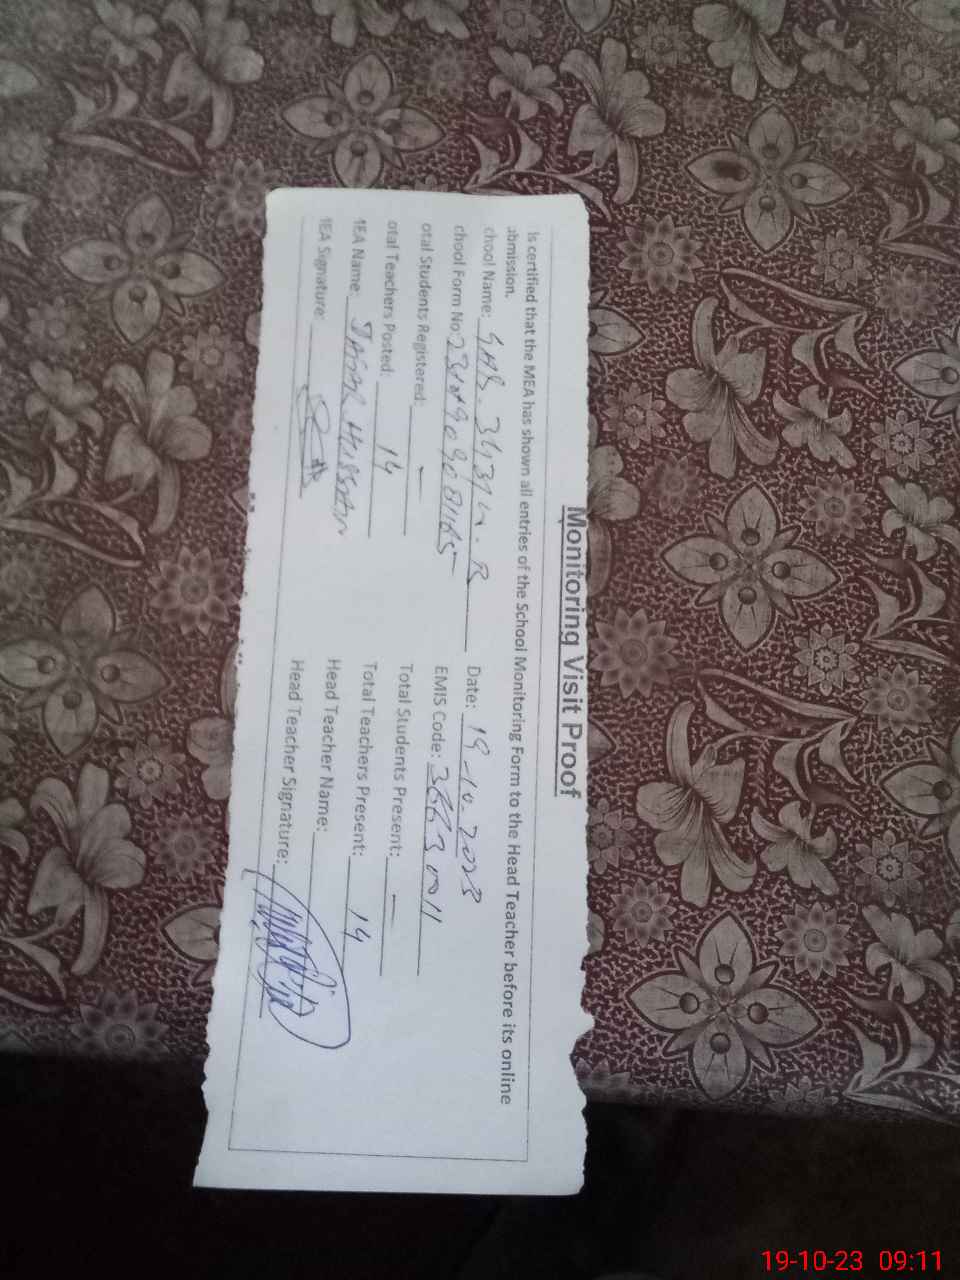 Monitoring Visit Proof
is certified that the MEA has shown all entries of the School Monitoring Form to the Head Teacher before its online
bmission.
chool Name: Date: 19-10-2023
chool Form No: EMIS Code:
otal Students Registered: — Total Students Present: —
otal Teachers Posted: 14 Total Teachers Present: 14
MEA Name: Head Teacher Name:
MEA Signature: Head Teacher Signature:
19-10-23 09:11